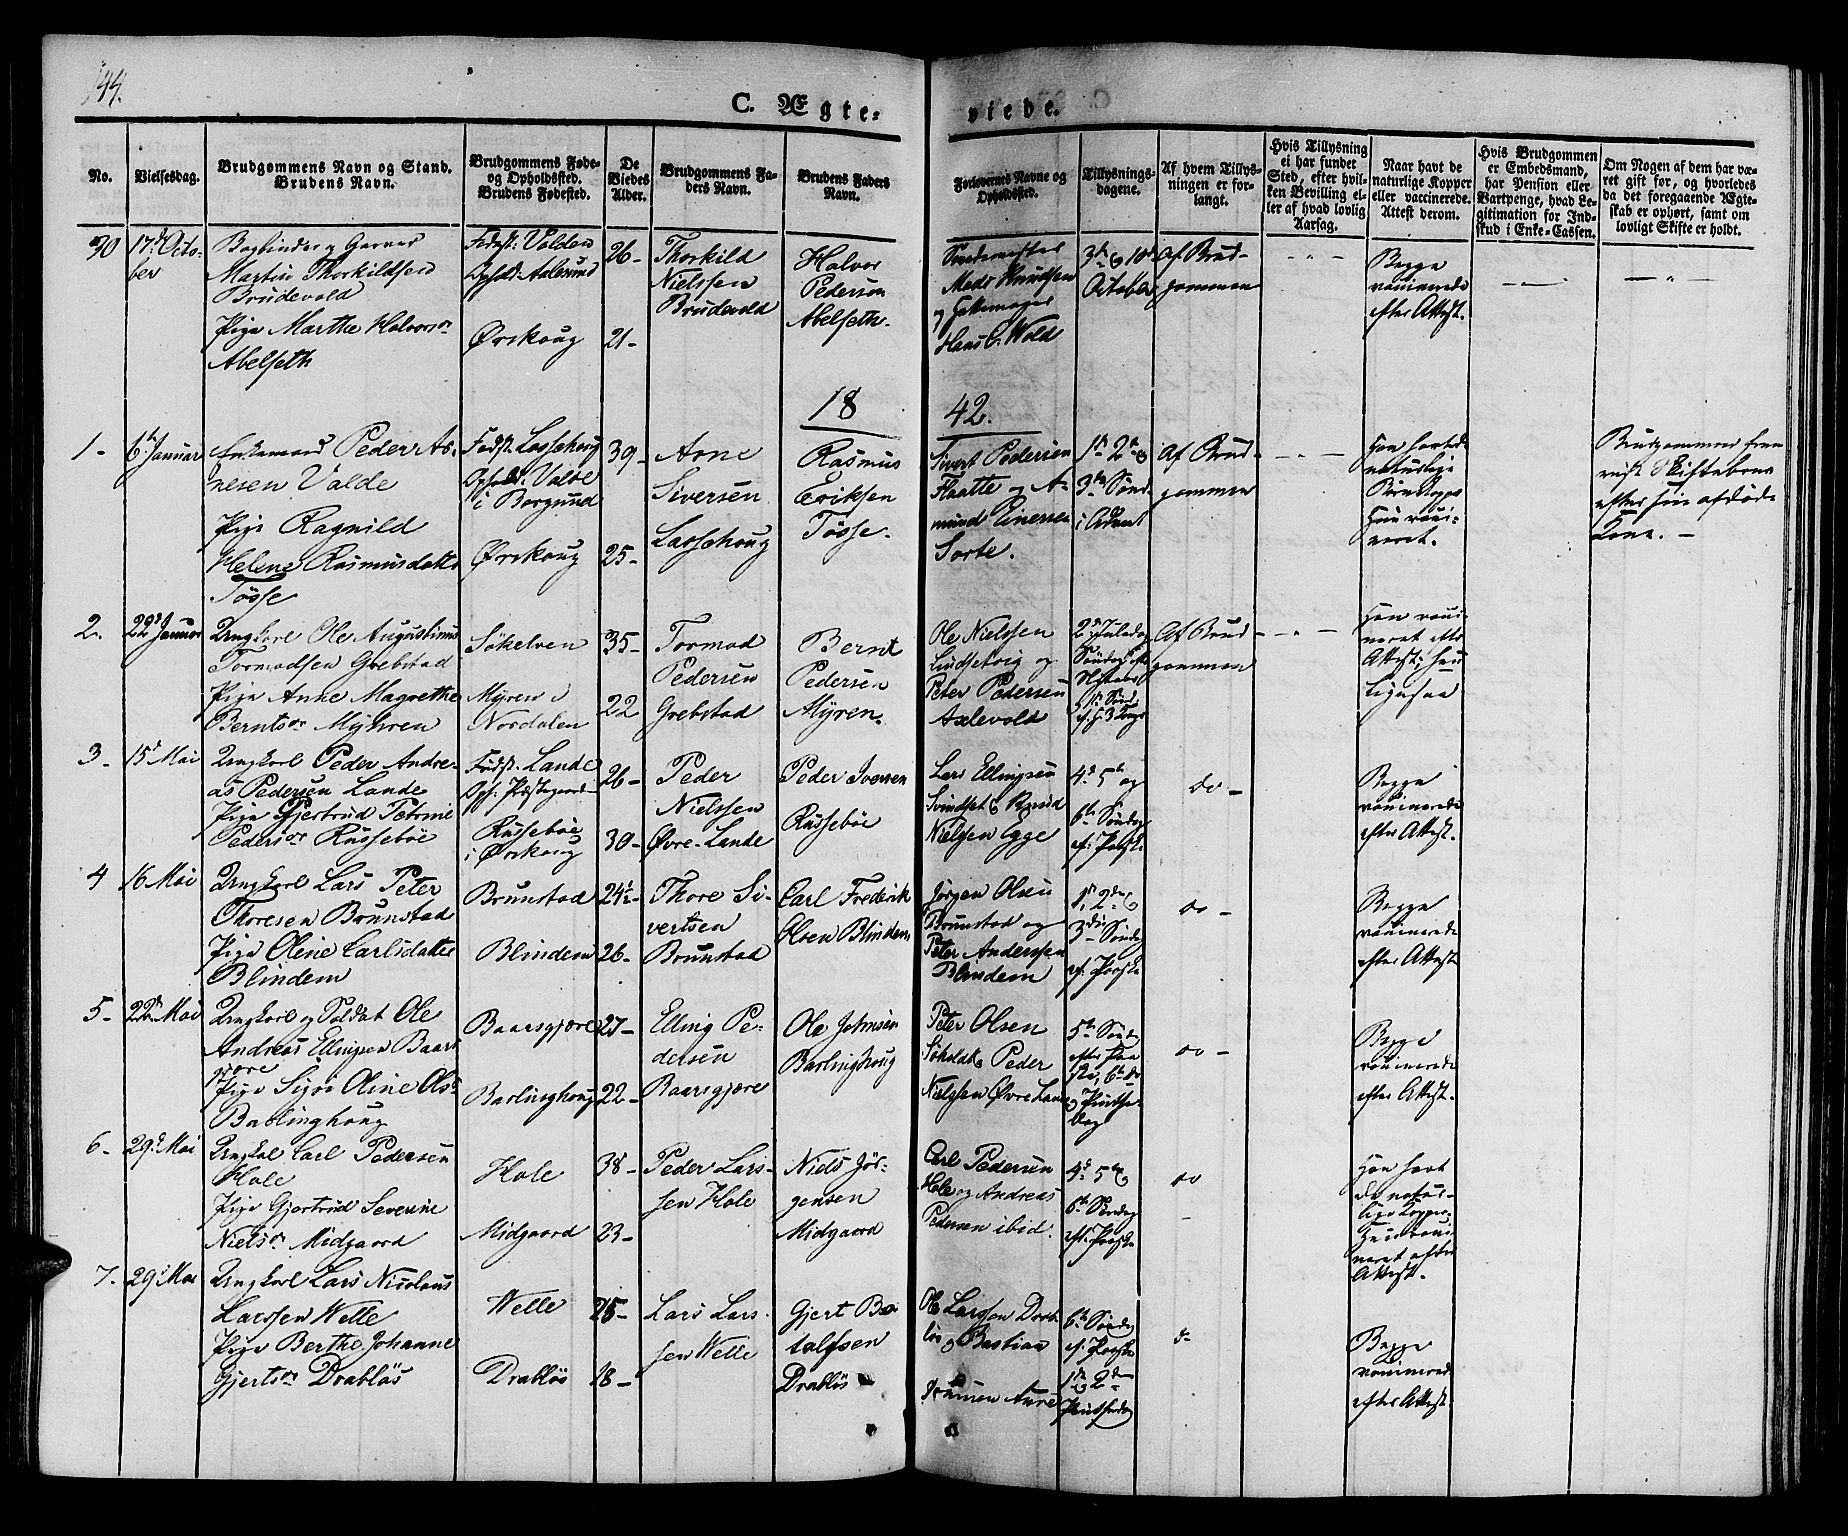 144.
C. Ægte-
viede.
No.
Vielsesdag.
Brudgommens Navn og Stand.
Brudens Navn.
Brudgommens Føde-
og Opholdssted.
Brudens Fødested.
De
Viedes
Alder.
Brudgommens Fa-
ders Navn.
Brudens Faders
Navn.
Forlovernes Navne og
Opholdssted.
Tillysnings-
dagene.
Af hvem Tillys-
ningen er for-
langt.
Hvis Tillysning
ei har fundet
Sted, efter hvil-
ken Bevilling el-
ler af hvad lovlig
Aarsag.
Naar havt de
naturlige Kopper
eller vaccinerede.
Attest derom.
Hvis Brudgommen
er Embedsmand,
har Pension eller
Vartpenge, hvad Le-
gitimation for Ind-
skud i Enke-Cassen.
Om Nogen af dem har væ-
ret gift før, og hvorledes
da det foregaaende Ægte-
skab er ophørt, samt om
lovligt Skifte er holdt.
30
17d Octo-
ber
Bogbinder og Garver
Martin Thorkildsen
Brudevold
Pige Marthe Halvorsdr
Abelseth
Fødest: Valden
Opholdst: Aalesund
Ørskoug
26-
21-
Thorkild
Nielssen
Brudevold
Halvor
Pedersen
Abelseth.
Mads Knudsen
og
Hans C. Wold
3d & 10d
October
Af Brud-
gommen
Begge
vaccinerede
efter Attest.
1842.
1-
6te Januar
Enkemand Peder Ar-
nesen Valde
Pige Ragnild
Helene Rasmusdatter
Tösse
Fødst. Lassehoug
Opholdst. Valde
i Borgund
Ørskoug
39-
25-
Arne
Siversen
Lassehoug
Rasmus
Eriksen
Tösse.
Sivert Pedersen
Flaatte og A-
mund Einersen
Sorte.
1ste 2den &
3die Sønd.
i Advent
Af Brud-
gommen
Han havt de
naturlige
Børnekopper
Hun vacci-
neret.
Brudgommen frem-
vist Skiftebrev
efter sin afdøde
Kone. -
2.
22d Januar
Ungkarl Ole Augustinus
Tormodsen Grebstad
Pige Anne Magrethe
Berntsdr Myhren
Søkelven
Myren i
Nordalen
35-
22
Tormod
Pedersen
Grebstad
Bernt
Pedersen
Myren.
Ole Nielssen
Lindsetvig og
Peter Pedersen
Axlevold
2den Juledag
Søndag efter
Nytaar
& 1ste Sønd.
ef. H. 3 Konger
Af Brud-
gommen
Han vacci-
neret efter
Attest; hun
ligesaa
3-
15d Mai
Ungkarl Peder Andre-
as Pedersen Lande
Pige Gjertrud Petrine
Pedersdr Russebøe
Fødst. Lande
Oph. Præstegaard
Russebøe
i Ørskoug
26-
30-
Peder
Nielssen
Øvre-Lande
Peder Iversen
Russebøe
Lars Ellingsen
Svindset & Knud
Nielsen Egge
4d 5te og
6te Søndag
ef. Paaske
do -
Begge
vaccinerede
efter Attest.
4
16 Mai
Ungkarl Lars Peter
Thoresen Brunstad
Pige Oline Carlsdatter
Blindem
Brunstad
Blindem
24½-
26-
Thore Si-
vertsen
Brunstad
Carl Frederik
Olsen Blindem
Jørgen Olsen
Brunstad og
Peter Anderssen
Blindem
1ste 2den &
3die Søndag
ef. Paaske
do -
Begge
vaccinerede
efter Attest
5-
22d Mai
Ungkarl og Soldat Ole
Andreas Ellingsen Baars
gjære
Pige Sigri Oline Olsdr
Barlinghoug
Baarsgjære
Barlinghoug
27-
22-
Elling Pe-
dersen
Baarsgjære
Ole Johnsen
Barlinghoug
Peter Olsen
Søholdt & Peder
Nielssen Øvre Lande
5te Søndag
efter Paa
ske, 6te do
& Pintse-
dag
do -
Begge
vaccinerede
efter Attest.
6-
29d Mai
Ungkal Carl Pedersen
Hole
Pige Gjertrud Severine
Nielsdr Midgaard
Hole
Midgaard
38-
23-
Peder Lars-
sen Hole
Niels Jör-
gensen
Midgaard
Carl Pedersen
Hole og Andreas
Pedersen ibid.
4d 5te &
6te Søndag
eft. Paaske
do
Han havt
de natur-
lige Kopper.
Hun vacci-
neret efter
Attest.
7.
29d Mai
Ungkarl Lars Nicolaus
Larssen Welle
Pige Berthe Johanne
Gjertsdr Drabløs
Welle
Drabløs
25-
18-
Lars Lars-
sen Welle
Gjert Ba-
stalfsen
Drabløs
Ole Larssen Drab-
løs og Bastian
Aure
6te Søndag
ef. Paaske
1ste & 2den
Pintsedag
do
Begge
vaccinerede
efter Attest.